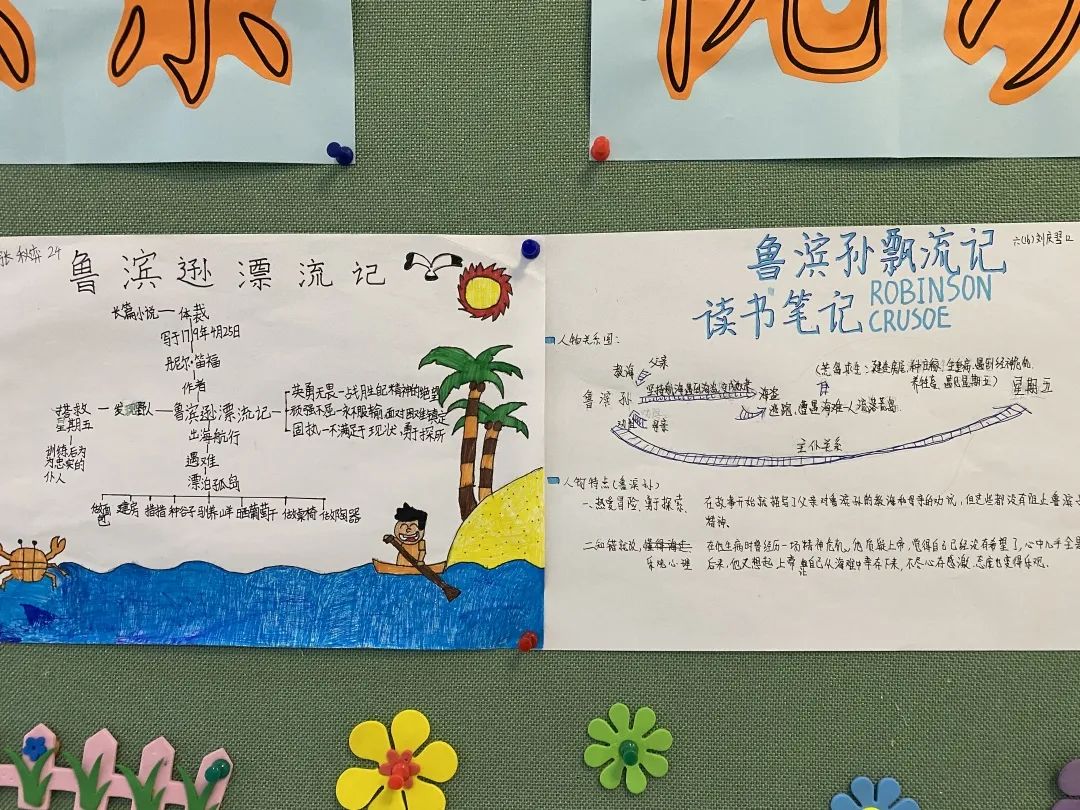 张秋弈 24
鲁滨逊漂流记
长篇小说 — 体裁
写于1719年4月25日
丹尼尔·笛福
作者
搭救星期五 — 发现野人 — 鲁滨逊漂流记
英勇无畏—战胜
顽强不屈—永不服输,面对困难镇定
固执—不满足于现状,勇于探所
训练后成为忠实的仆人
出海航行
遇难
漂泊孤岛
做面包 建房 种谷子 驯养山羊 晒葡萄干 做桌椅 做陶器
鲁滨孙飘流记
读书笔记
ROBINSON
CRUSOE
人物关系图:
教诲 父亲
鲁滨孙
海盗
母亲
逃跑,遭遇海难—人流落荒岛
星期五
主仆关系
人物特点(鲁滨孙)
一.热爱冒险、勇于探索
在故事开始就描写了父亲对鲁滨孙的教诲和母亲的劝说,但这些都没有阻止鲁滨
精神。
二.知错就改,
乐观心理
在他生病时曾经历一场精神危机,他质疑上帝,觉得自己已经没有希望了,心中几乎全是
后来,他又想起上帝 自己从海难中幸存下来,不尽心存感激,态度也变得乐观。